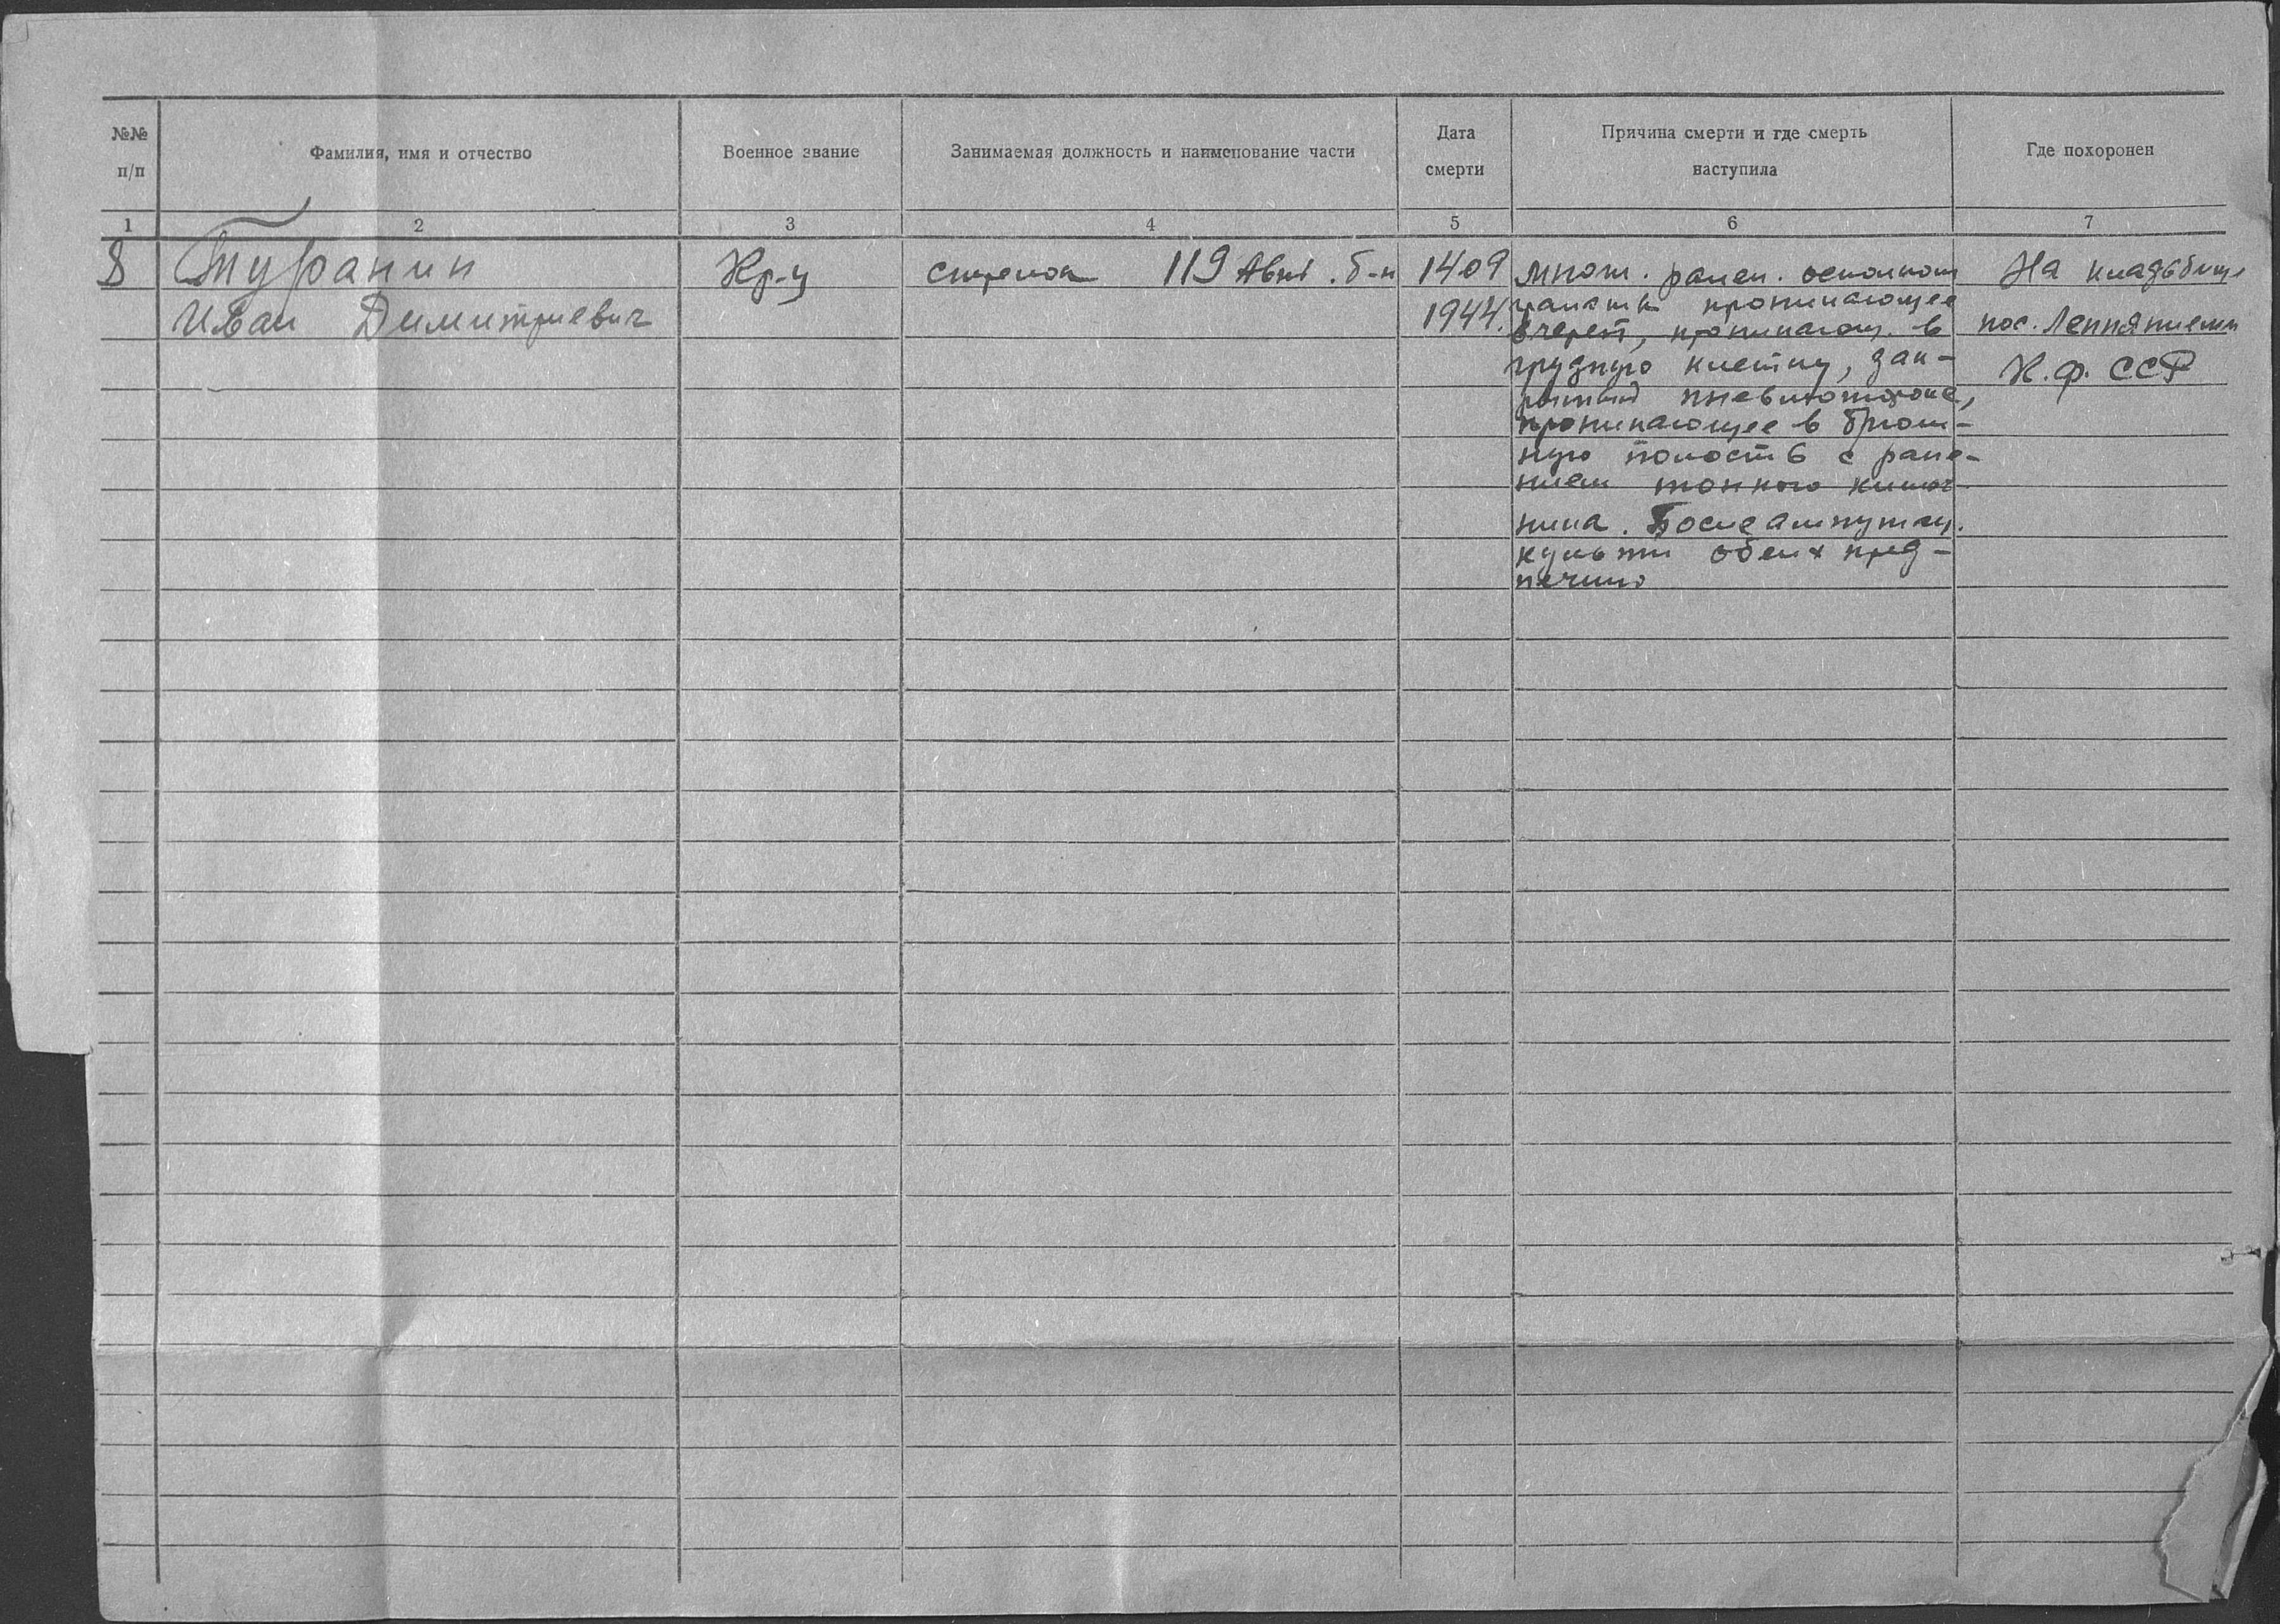 №№
п/п
Фамилия, имя и отчество
Военное звание
Занимаемая должность и наименование части
Дата
смерти
Причина смерти и где смерть
наступила
Где похоронен
1 2 3 4 5 6 7
8 Туранин
Иван Димитриевич
Кр-ц
стрелок 119 б-н
1409
1944.
множ. ранен. осколком
гранаты проникающее
в череп, проникающ. в
грудную клетку, зак-
рытый пневмоторакс,
проникающее в брюш-
ную полость с ране-
нием тонкого кишеч-
ника. После ампутац.
культи обеих пред-
плечий
На кладбище
пос. Леппяниеми
К.Ф. ССР